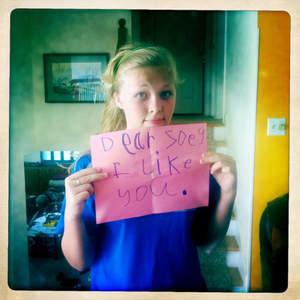 Dear Joey
I like
you.